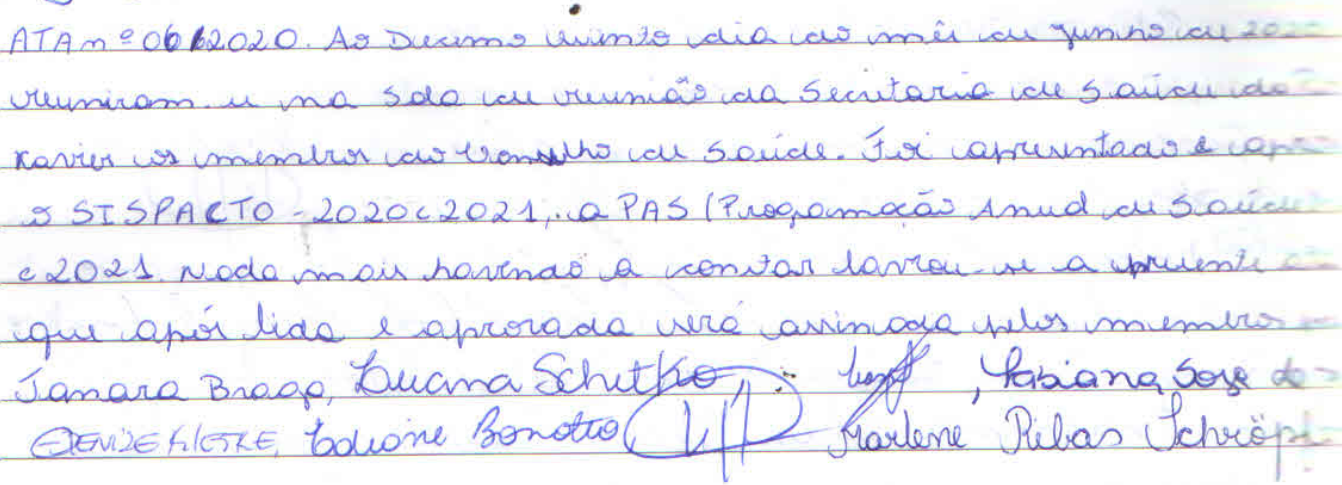 ATA nº 06/2020. Ao Decimo quinto dia do mês de junho de 20
reuniram se na sala de reunião da Secretaria de Saúde de
Xavier os membros do Conselho de Saúde. Foi apresentado e
o SISPACTO - 2020 e 2021, a PAS (Programação Anual de Saúde
e 2021. Nada mais havendo a constar lavrou-se a presente
que após lida e aprovada será assinada pelos membro
Tamara Braga, Luciana Schitko, Fabiana
Bonotto Marlene Ribas Schröp